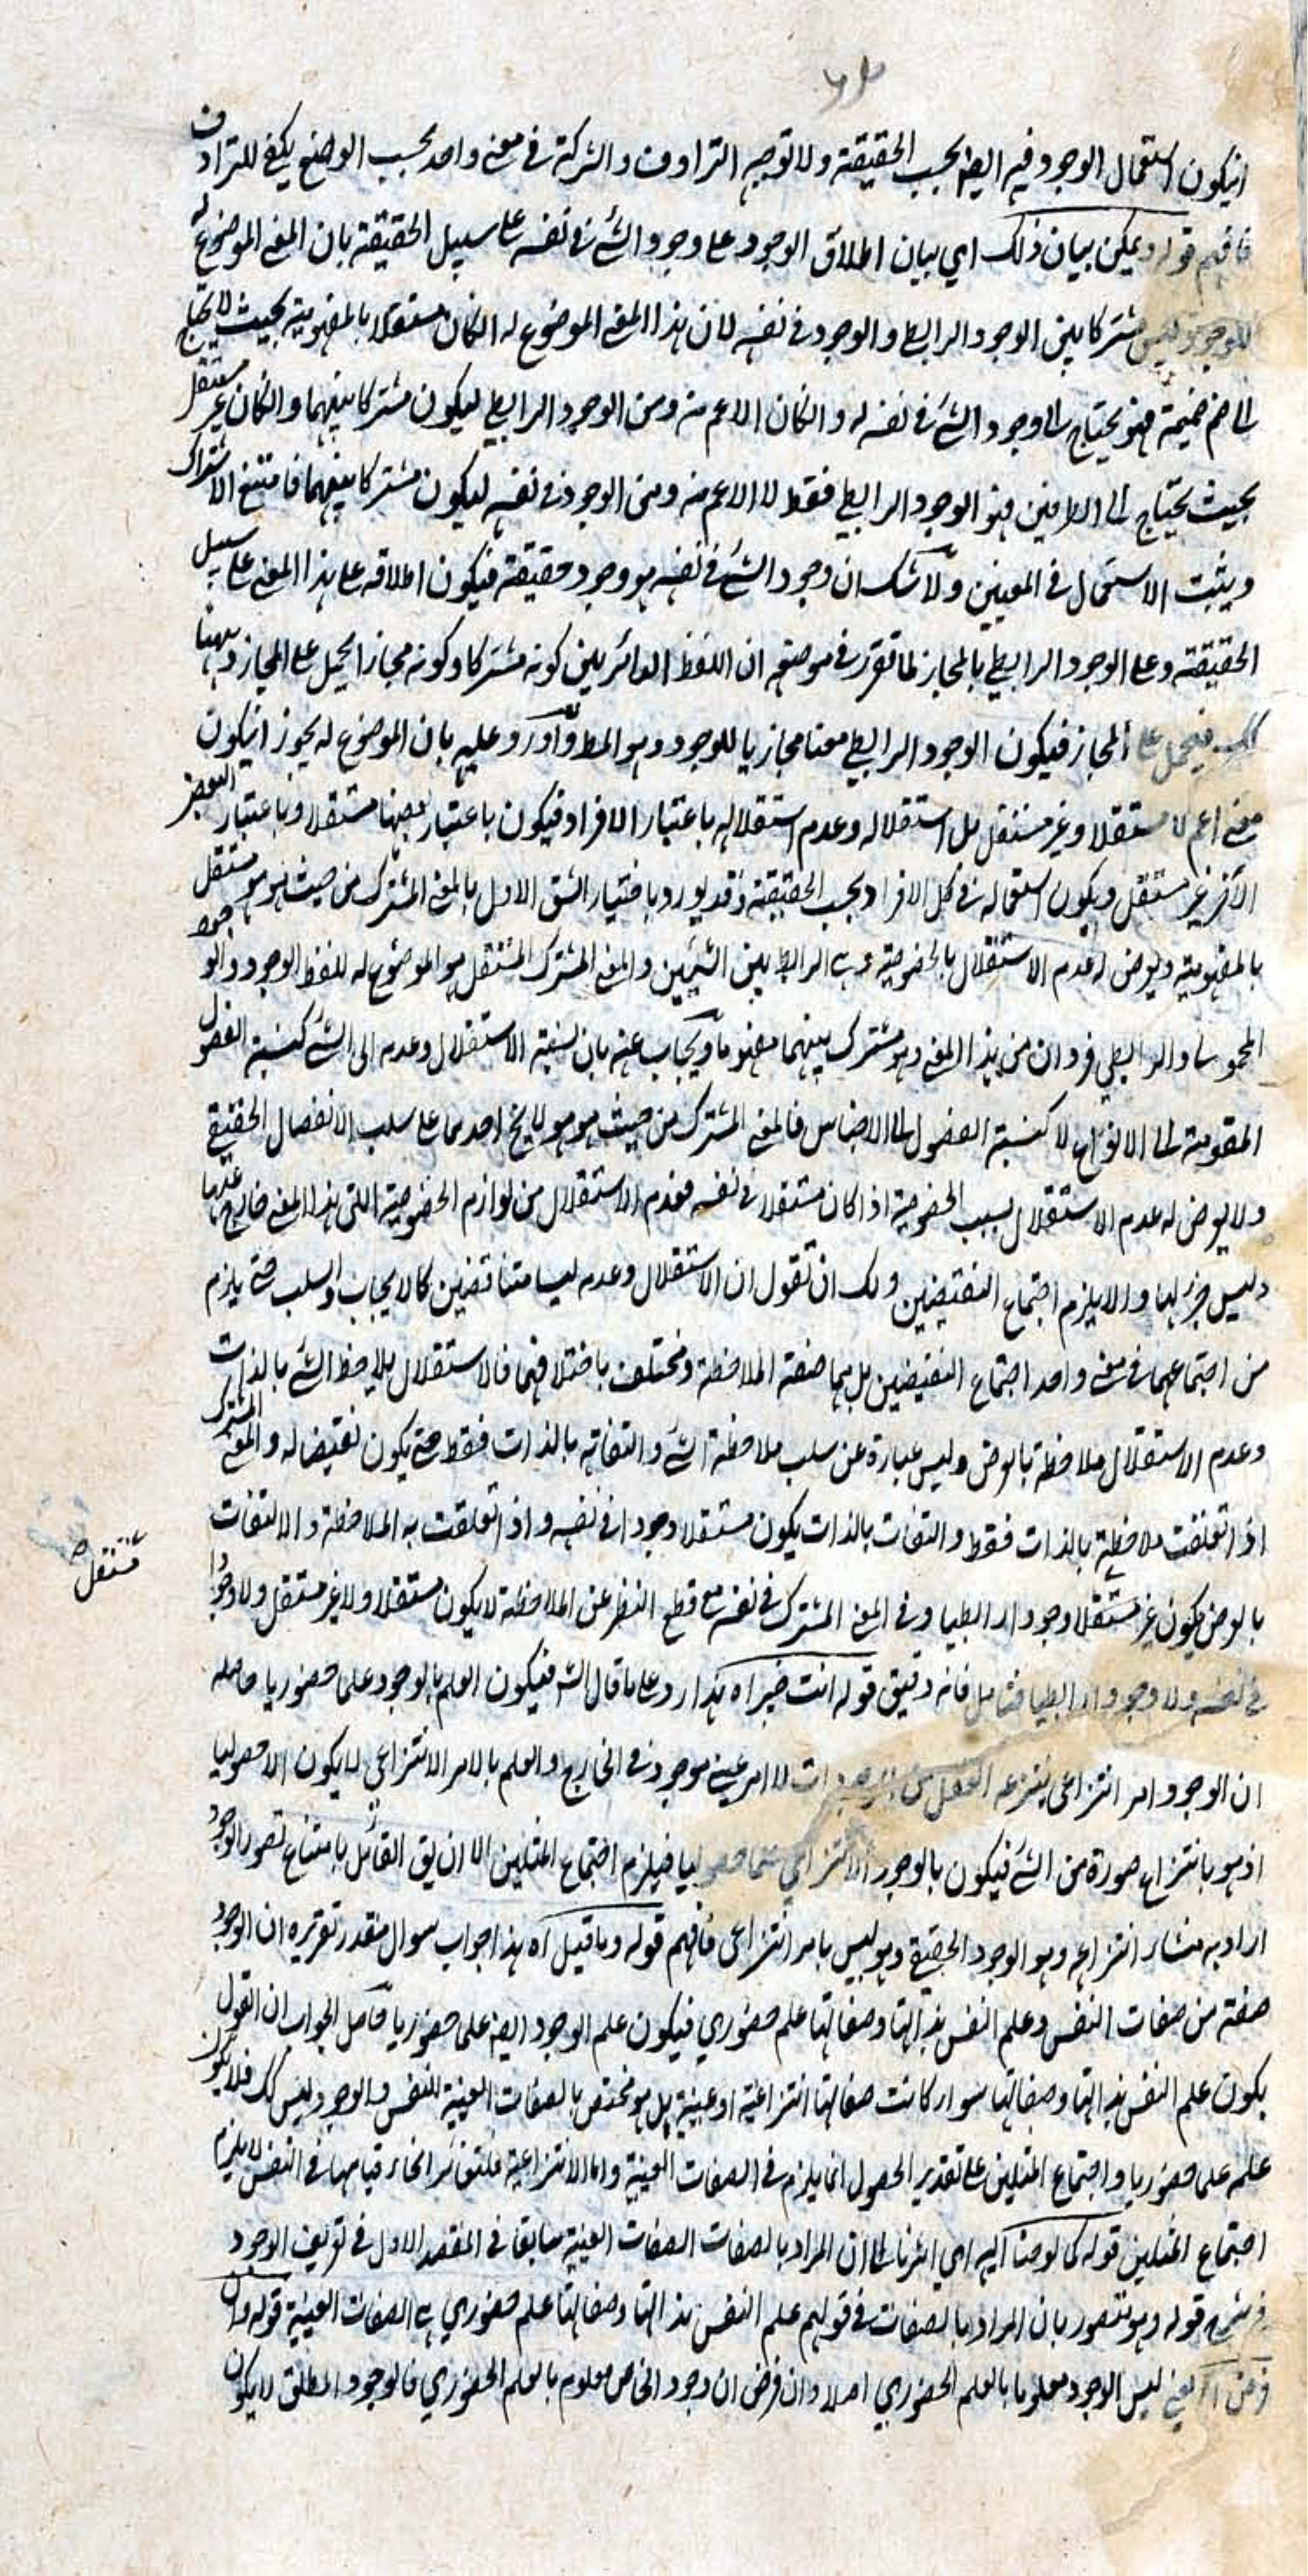 انيكون استعمال الوجود فيه ايضا بحسب الحقيقة ولا توجيه الترادف والشركة في معنى واحد بحسب الوضع يكفي للترادف
فافهم قوله ويمكن بيان ذلك اي بيان اطلاق الوجود على وجود الشئ في نفسه على سبيل الحقيقة بان المعنى الموضوع له
للوجود ليس مشتركا بين الوجود الرابطي والوجود في نفسه لان هذا المعنى الموضوع له انكان مستقلا بالمفهومية بحيث لا يحتاج
الى ضم ضميمة فهو يحتاج الى وجود الشئ في نفسه له وانكان الاعم منه ومن الوجود الرابطي ليكون مشتركا بينهما وانكان غير مستقل
بحيث يحتاج الى الطرفين فهو الوجود الرابطي فقط لا الاعم منه ومن الوجود في نفسه ليكون مشتركا بينهما فامتنع الاشتراك
ويثبت الاستعمال في المعنيين ولا شك ان وجود الشئ في نفسه هو وجود حقيقة فيكون اطلاقه على هذا المعنى على سبيل
الحقيقة وعلى الوجود الرابطي بالمجاز لما تقرر في موضعه ان اللفظ الدائر بين كونه مشتركا وكونه مجازا يحمل على المجاز وههنا
كك فيحمل على المجاز فيكون الوجود الرابطي معنا مجازيا للوجود وهو المط واورد عليه بان الموضوع له يجوز انيكون
معنى اعم لا مستقلا وغير مستقل بل استقلاله وعدم استقلاله باعتبار الافراد فيكون باعتبار بعضها مستقلا وباعتبار البعض
الآخر غير مستقل ويكون استعماله في كل الافراد بحسب الحقيقة وقد يورد باختيار الشق الاول بالمعنى المشترك من حيث هو هو مستقل
بالمفهومية ويعرض له عدم الاستقلال بالخصوصية وهي الرابط بين الشيئين والمعنى المشترك المستقل هو الموضوع له للفظ الوجود والوجود
المحمولي والرابطي فردان من هذا المعنى وهو مشترك بينهما مفهوما ويجاب عنه بان نسبة الاستقلال وعدمه الى الشئ كنسبة الفصول
المقومة الى الانواع لا كنسبة الفصول الى الاجناس فالمعنى المشترك من حيث هو هو لا يخ احدهما على سلب الانفصال الحقيقي
ولا يعرض له عدم الاستقلال بسبب الخصوصية اذا كان مستقلا في نفسه فعدم الاستقلال من لوازم الخصوصية التي هذا المعنى خارج عنها
وليس جزء لها والا يلزم اجتماع النقيضين ولك ان تقول ان الاستقلال وعدمه ليسا متناقضين كالايجاب والسلب حتى يلزم
من اجتماعهما في معنى واحد اجتماع النقيضين بل هما صفة الملاحظة ومختلف باختلافهما فالاستقلال ملاحظة الشئ بالذات
وعدم الاستقلال ملاحظة بالعرض وليس عبارة عن سلب ملاحظة الشئ والتفاته بالذات فقط حتى يكون نقيضا له والمعنى المشترك
اذا تعلقت ملاحظته بالذات فقط والتفات بالذات يكون مستقلا وجودا في نفسه واذا تعلقت به الملاحظة والالتفات
بالعرض فيكون غير مستقلا وجودا رابطيا وفي المعنى المشترك في نفسه مع قطع النظر عن الملاحظة لا يكون مستقلا ولا غير مستقل ولا وجودا
مستقل
في نفسه ولا وجودا رابطيا فتامل فانه دقيق قوله انت خبير اه هذا رد على ما قال الش فيكون العلم بالوجود علما حضوريا حاصله
ان الوجود امر انتزاعي ينتزعه العقل من الموجودات لا امر عيني موجود في الخارج والعلم بالامر الانتزاعي لا يكون الا حصوليا
اذ هو بانتزاع صورة من الشئ فيكون بالوجود الانتزاعي علما حصوليا فيلزم اجتماع المثلين الا ان يق القائل بامتناع تصور الوجود
اراد به منشاء انتزاعه وهو الوجود الحقيقي وهو ليس بامر انتزاعي فافهم قوله وما قيل اه هذا جواب سوال مقدر تقريره ان الوجود
صفة من صفات النفس وعلم النفس بذاتها وصفاتها علم حضوري فيكون علم الوجود ايضا علما حضوريا حاصل الجواب ان القول
بكون علم النفس بذاتها وصفاتها سواء كانت صفاتها انتزاعية او عينية بل هو مختص بالصفات العينية للنفس والوجود ليس كك فلا يكون
علمه علما حضوريا واجتماع المثلين على تقدير الحصول انما يلزم في الصفات العينية واما الانتزاعية فلتغائر انحاء قيامها في النفس لا يلزم
اجتماع المثلين قوله كما لوحنا اليه اي اشرنا الى ان المراد بالصفات الصفات العينية سابقا في المقصد الاول في تعريف الوجود
قوله وهو تصور بان المراد بالصفات في قولهم علم النفس بذاتها وصفاتها علم حضوري هي الصفات العينية قوله وان
فرض اه يعني ليس الوجود معلوما بالعلم الحضوري اصلا وان فرض ان وجود الخاص معلوم بالعلم الحضوري فالوجود المطلق لا يكون